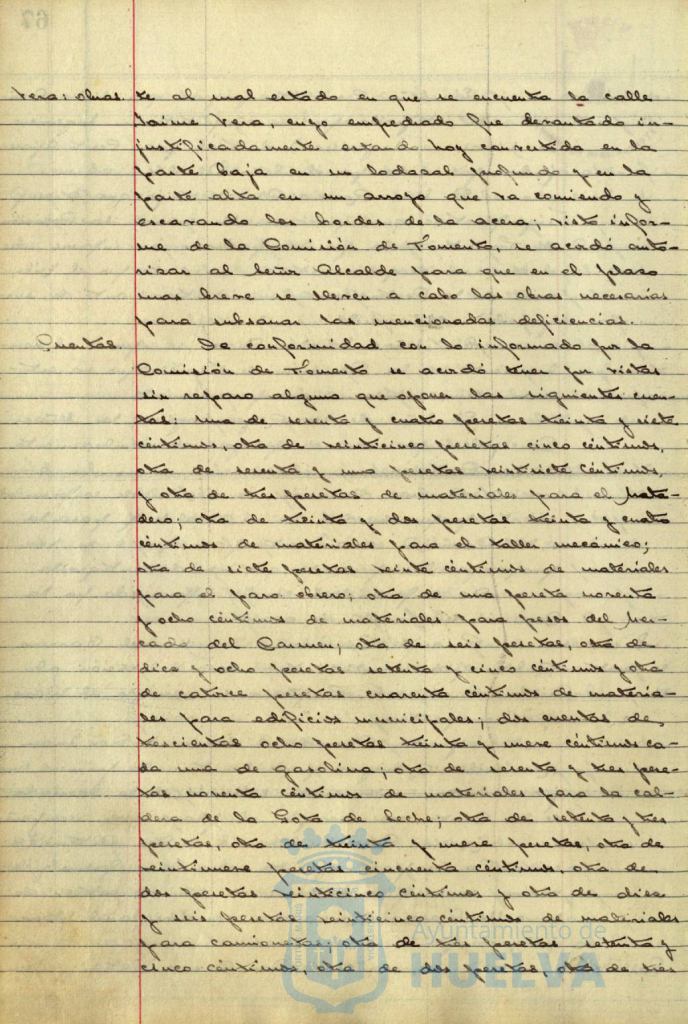 Vera: obras. te al mal estado en que se encuentra la calle
Jaime Vera, cuyo empedrado fue levantado in-
justificadamente estando hoy convertido en la
parte baja en un lodazal profundo y en la
parte alta en un arroyo que va comiendo y
escavando los bordes de la acera; visto infor-
me de la Comisión de Fomento, se acordó auto-
rizar al Señor Alcalde para que en el plazo
mas breve se lleven a cabo las obras necesarias
para subsanar las mencionadas deficiencias.
Cuentas. De conformidad con lo informado por la
Comisión de Fomento se acordó tener por vistas
sin reparo alguno que oponer las siguientes cuen-
tas: una de sesenta y cuatro pesetas treinta y siete
céntimos, otra de veinticinco pesetas cinco céntimos,
otra de sesenta y una pesetas veintisiete céntimos,
y otra de tres pesetas de materiales para el Mata-
dero; otra de treinta y dos pesetas treinta y cuatro
céntimos de materiales para el taller mecánico;
otra de siete pesetas veinte céntimos de materiales
para el paro obrero; otra de una peseta noventa
y ocho céntimos de materiales para pesos del Mer-
cado del Carmen; otra de seis pesetas, otra de
diez y ocho pesetas setenta y cinco céntimos y otra
de catorce pesetas cuarenta céntimos de materia-
les para edificios municipales; dos cuentas de
trescientas ocho pesetas treinta y nueve céntimos ca-
da una de gasolina; otra de sesenta y tres pese-
tas noventa céntimos de materiales para la cal-
dera de la Gota de Leche; otra de setenta y tres
pesetas, otra de treinta y nueve pesetas, otra de
veintinueve pesetas cincuenta céntimos, otra de
dos pesetas veinticinco céntimos y otra de diez
y seis pesetas veinticinco céntimos de materiales
para camionetas; otra de tres pesetas setenta y
cinco céntimos, otra de dos pesetas, otra de tres
Ayuntamiento de
HUELVA